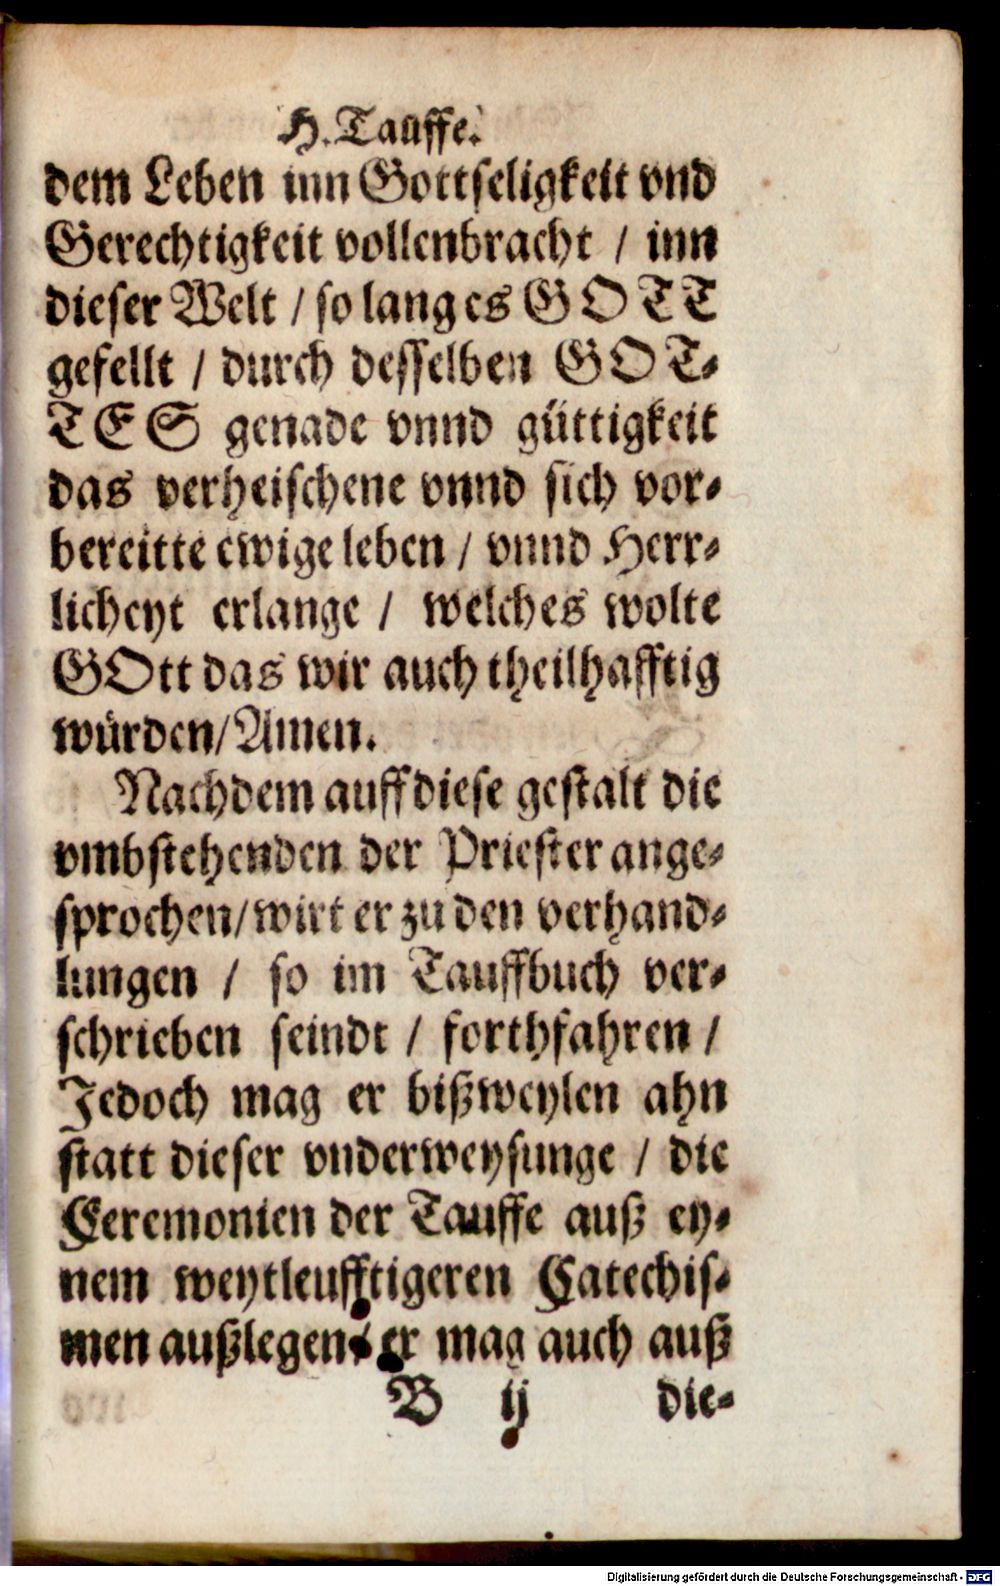 H. Tauffe.
dem Leben inn Gottseligkeit vnd
Gerechtigkeit vollenbracht / inn
dieser Welt / so lang es GOTT
gefellt / durch desselben GOT-
TES genade vnnd güttigkeit
das verheischene vnnd sich vor-
bereitte ewige leben / vnnd Herr-
licheyt erlange / welches wolte
GOtt das wir auch theilhafftig
würden/ Amen.
Nachdem auff diese gestalt die
vmbstehenden der Priester ange-
sprochen/ wirt er zu den verhand-
lungen / so im Tauffbuch ver-
schrieben seindt / forthfahren /
Jedoch mag er bißweylen ahn
statt dieser vnderweysunge / die
Ceremonien der Tauffe auß ey-
nem weytleufftigeren Catechis-
men außlegen / er mag auch auß
B ij die-
Digitalisierung gefördert durch die Deutsche Forschungsgemeinschaft - DFG